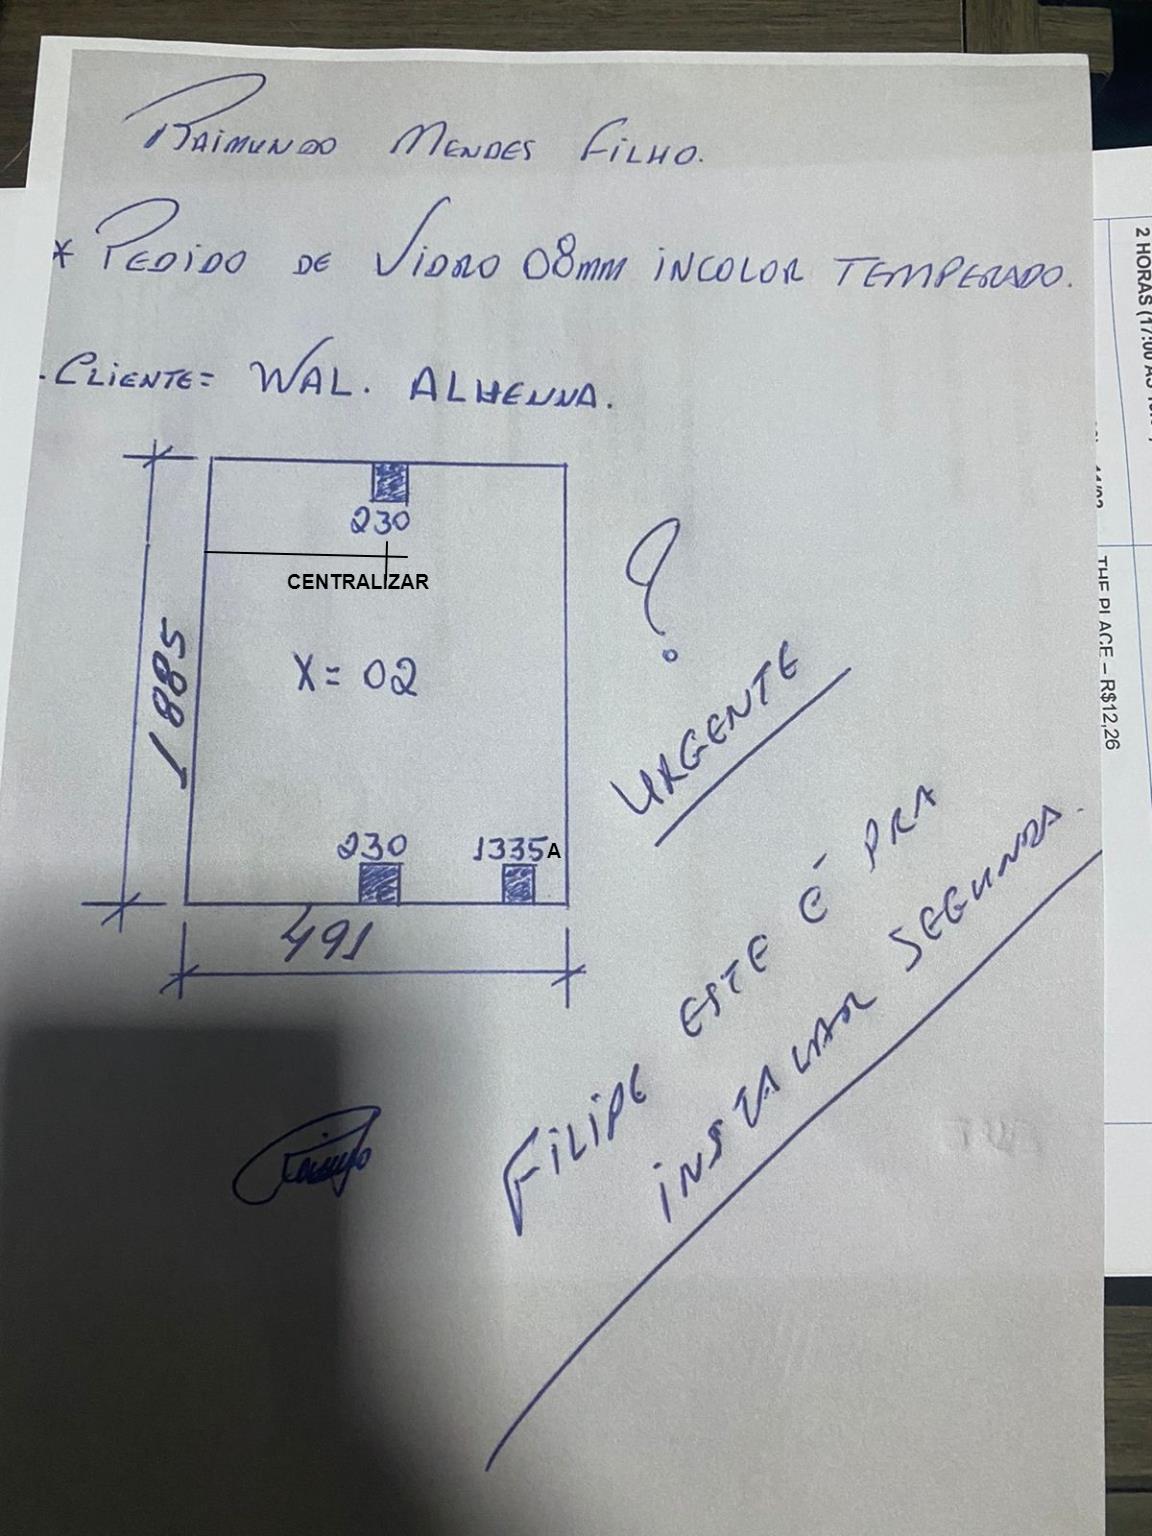 RAIMUNDO MENDES FILHO.
* PEDIDO DE VIDRO 08mm INCOLOR TEMPERADO.
. CLIENTE= WAL. ALHENNA.
230
CENTRALIZAR
1885
X= 02
230
1335A
491
?
URGENTE
FILIPE ESTE É PRA
INSTALAR SEGUNDA.
2 HORAS (17:00
THE PLACE – R$12,26